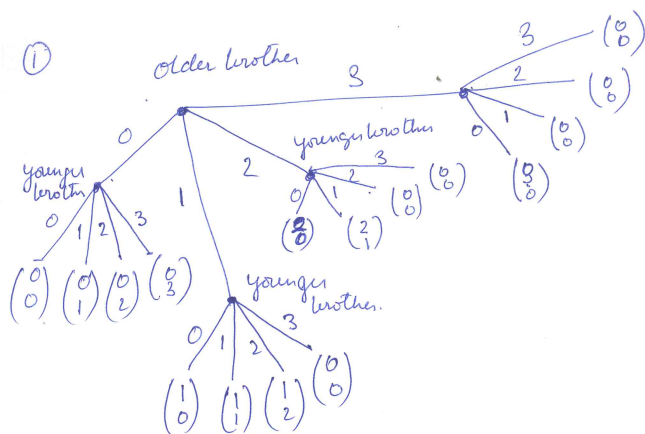 1
older brother
3
3
(0 0)
2
(0 0)
1
(0 0)
0
0
younger brother
0
1
2
3
(0 0)
(0 1)
(0 2)
(0 3)
2
younger brother
3
(0 0)
2
(0 0)
1
(2 1)
0
1
younger
brother.
0
1
2
3
(1 0)
(1 1)
(1 2)
(0 0)